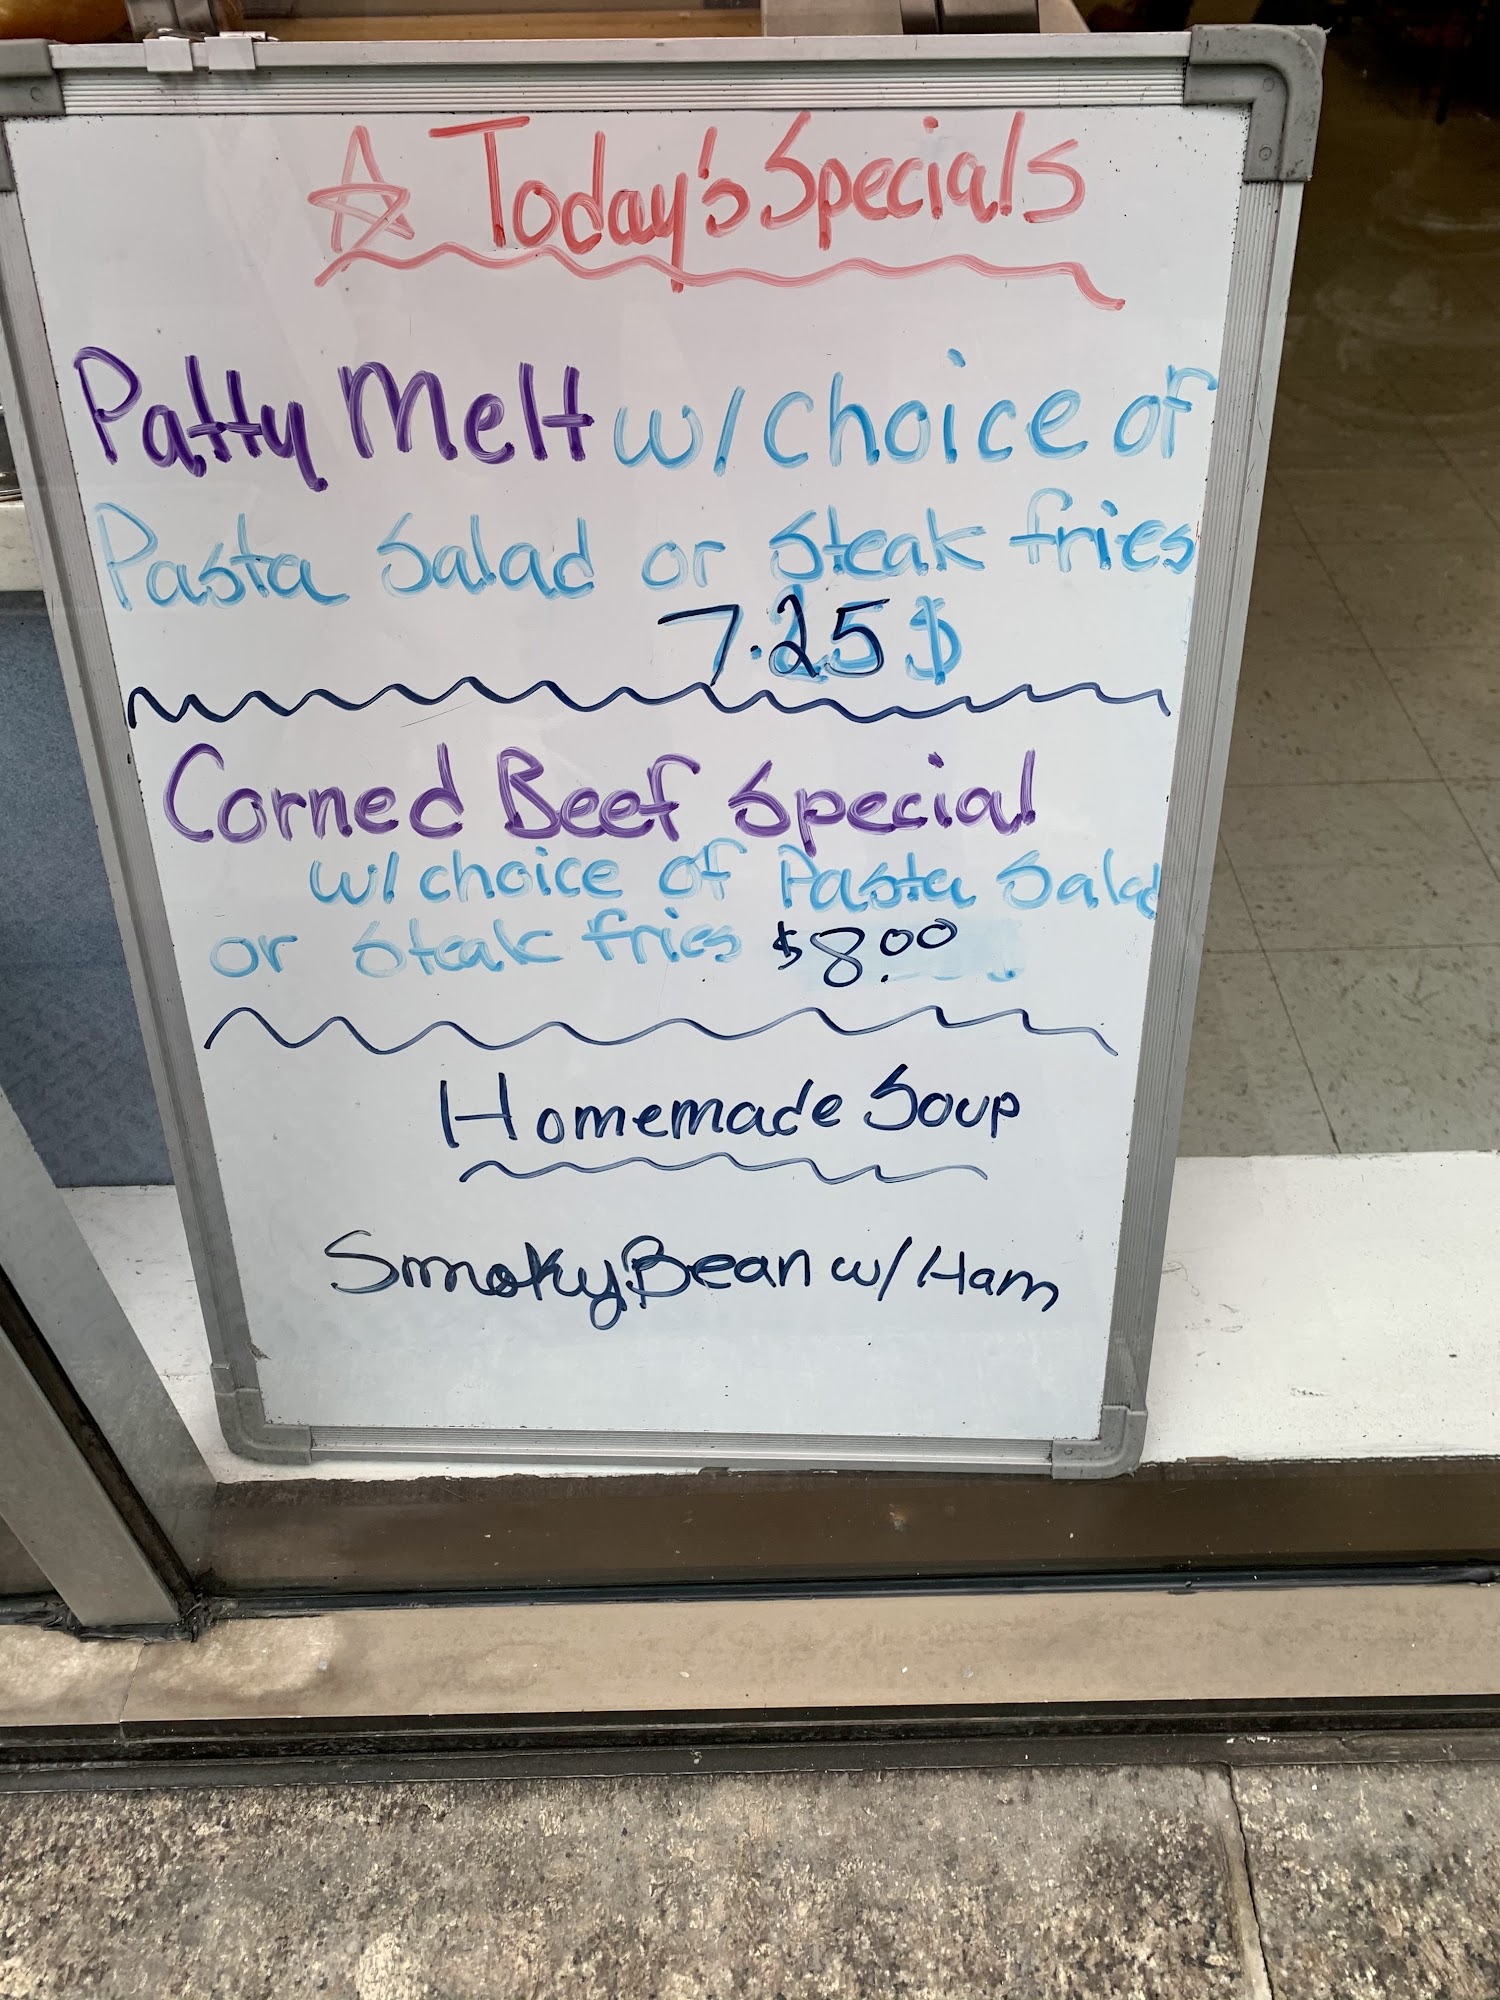 ☆ Today's Specials
Patty Melt w/ choice of
Pasta Salad or Steak fries
7.25$
Corned Beef Special
w/ choice of Pasta Salad
or Steak fries $8.00
Homemade Soup
Smoky Bean w/ Ham